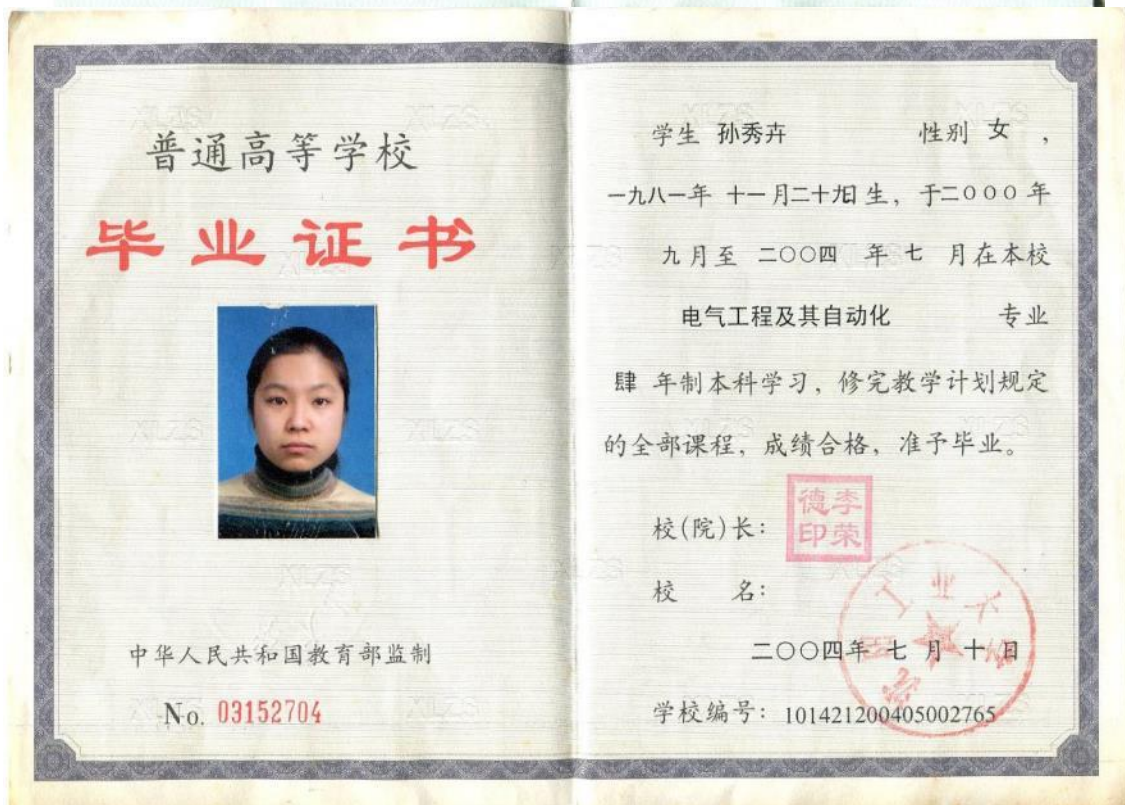 普通高等学校
毕业证书
中华人民共和国教育部监制
No. 03152704
学生 孙秀卉 性别 女 ,
一九八一年 十一月二十九日生，于二000 年
九月至 二〇〇四 年 七 月在本校
电气工程及其自动化 专业
肆 年制本科学习，修完教学计划规定
的全部课程，成绩合格，准予毕业。
校(院)长：
李荣德印
校 名：
工业大学
二〇〇四年 七 月 十 日
学校编号：101421200405002765
XLZS